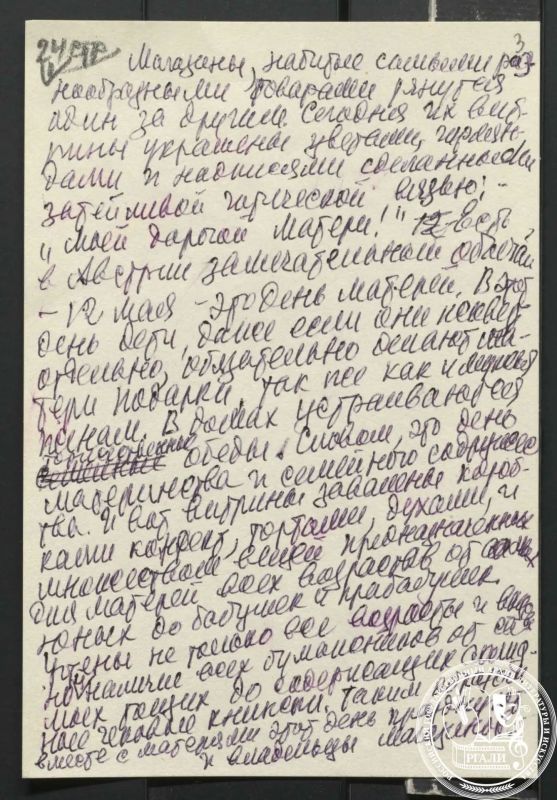 3
24 стр
Магазины, набитые самыми раз-
нообразными товарами тянутся
один за другим Сегодня их вит-
рины украшены цветами, гирлян-
дами и надписями сделанными
затейливой готической вязью: -
"Моей дорогой матери!" Есть
в Австрии замечательный обычай
- 12 мая - это День матерей. В этот
день дети, даже если они живут
отдельно, обязательно делают ма-
тери подарки, так же как и мужья
женам. В домах устраиваются
обеды. Словом, это день
материнства и семейного содружес
тва. И вот витрины завалены короб-
ками конфет, тортами, духами, и
множеством вещей предназначенных
для матерей всех возрастов от самых
юных до бабушек и прабабушек.
Учтены не только все возрасты и
но наличие всех бумажников от са
мых тощих до содержащих солид-
ные чековые книжки. Таким образом
вместе с матерями этот день празднуют
и владельцы магазинов
РОССИЙСКИЙ ГОСУДАРСТВЕННЫЙ АРХИВ ЛИТЕРАТУРЫ И ИСКУССТВА
РГАЛИ